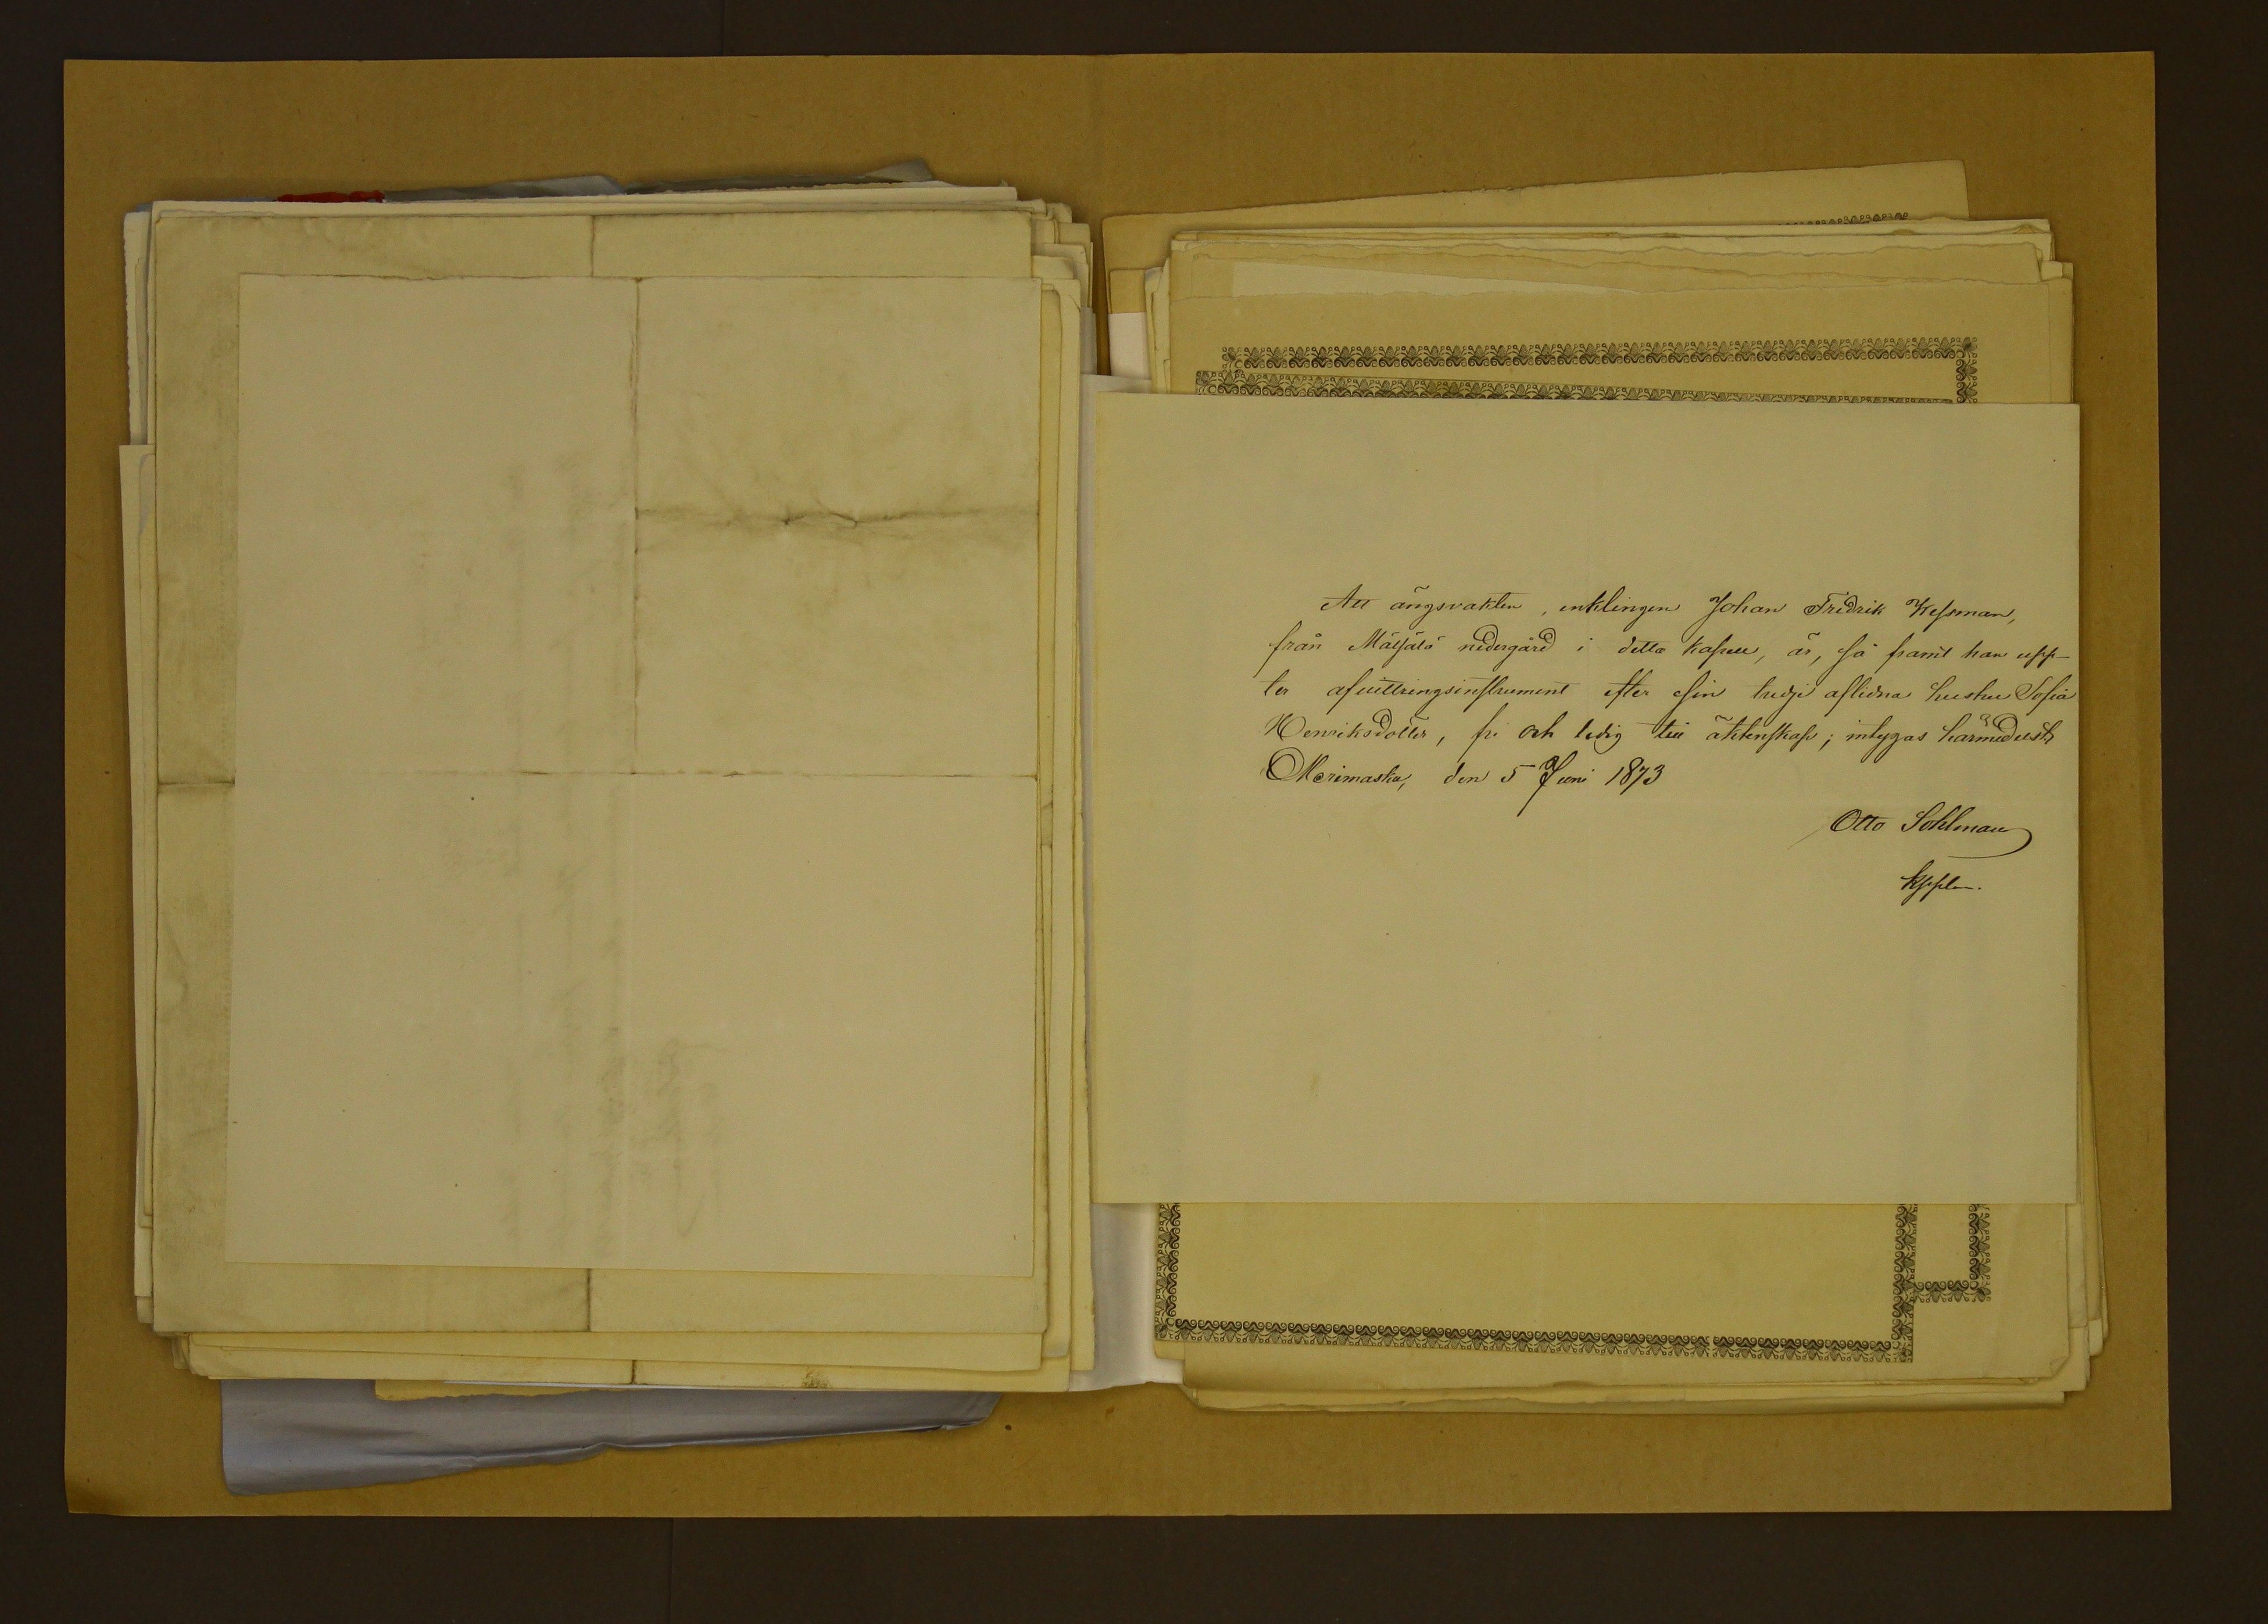 Att ängsvakten, enklingen Johan Fredrik Kessman,
från Mälsälö nedergård i detta kapell, är, så framt han upp-
ter afvittringsinstrument efter sin tredje aflidna hustru Sofia
Henriksdotter, fri och ledig till äktenskap; intygas härmedelst
Merimasku, den 5 Juni 1873
Otto Sohlman
Kppln.